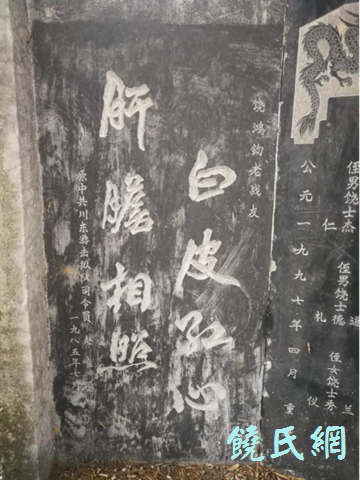 侄男饶士杰
仁
侄男饶士德
礼
道
侄女饶士秀
仪
兰
公元一九九七年四月 重
饶鸿钧老战友
白皮红心
肝膽相照
原中共川东游击纵队司令员
一九八五年七
饶氏網